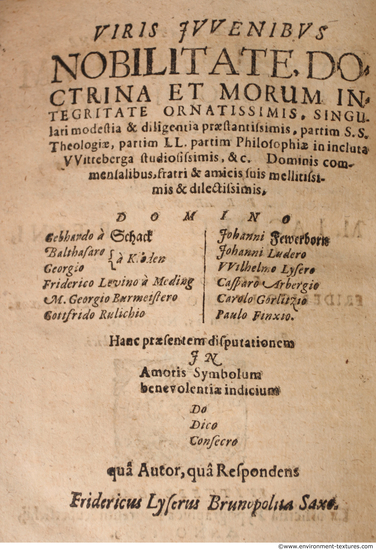 VIRIS JVVENIBVS
NOBILITATE, DO-
CTRINA ET MORUM IN-
TEGRITATE ORNATISSIMIS, SINGU-
lari modestia & diligentia præstantissimis, partim S.S.
Theologiæ, partim LL. partim Philosophiæ in incluta
VVitteberga studiosissimis, &c. Dominis com-
mensalibus, fratri & amicis suis mellitissi-
mis & dilectissimis,
DOMINO
Gebhardo à Schack
Balthasaro
Georgio
} à
Friderico Levino à Meding
M. Georgio Burmeistero
Gottfrido Rulichio
Johanni Fewerborn
Johanni Ludero
VVilhelmo Lysero
Casparo Arbergio
Carolo Görlitzio
Paulo Finxio.
Hanc præsentem disputationem
IN
Amoris Symbolum
benevolentiæ indicium
Do
Dico
Consecro
quâ Autor, quâ Respondens
Fridericus Lyserus Brunopolita Saxo.
©www.environment-textures.com